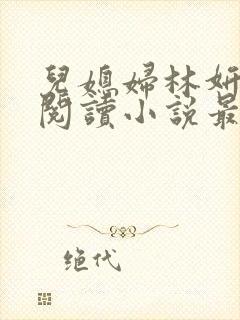 兒媳婦林妍
閱讀小說最
绝代